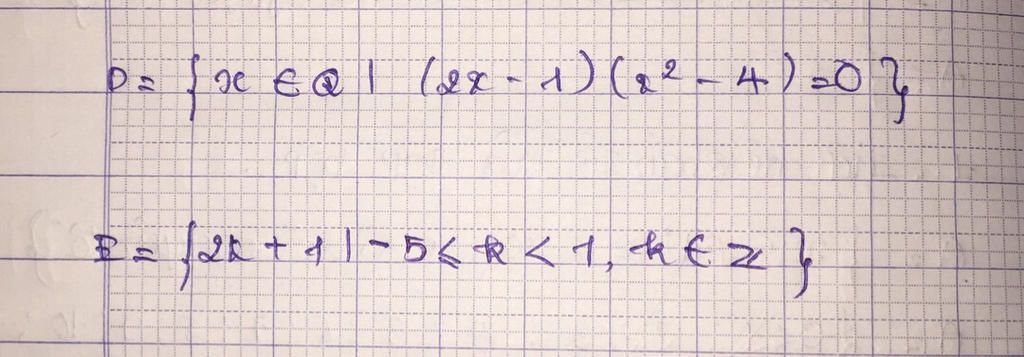 D = { x ∈ Q | (2x - 1)(x² - 4) = 0 }
E = { 2k + 1 | - 5 ⩽ k < 1, k ∈ Z }